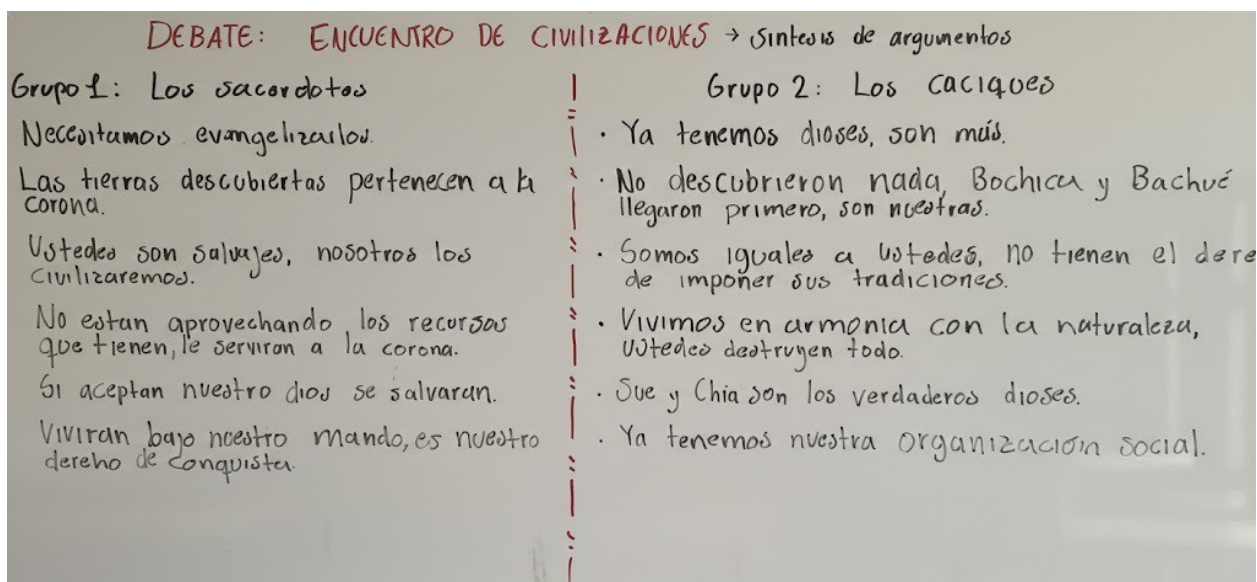 DEBATE: ENCUENTRO DE CIVILIZACIONES → sintesis de argumentos
Grupo 1: Los sacerdotes
Necesitamos evangelizarlos.
Las tierras descubiertas pertenecen a la
corona.
Ustedes son salvajes, nosotros los
civilizaremos.
No estan aprovechando los recursos
que tienen, le serviran a la corona.
Si aceptan nuestro dios se salvaran.
Viviran bajo nuestro mando, es nuestro
dereho de conquista.
Grupo 2: Los caciques
· Ya tenemos dioses, son más.
· No descubrieron nada, Bochica y Bachué
llegaron primero, son nuestras.
· Somos iguales a ustedes, no tienen el dere
de imponer sus tradiciones.
· Vivimos en armonia con la naturaleza,
ustedes destruyen todo.
· Sue y Chia son los verdaderos dioses.
· Ya tenemos nuestra organización social.